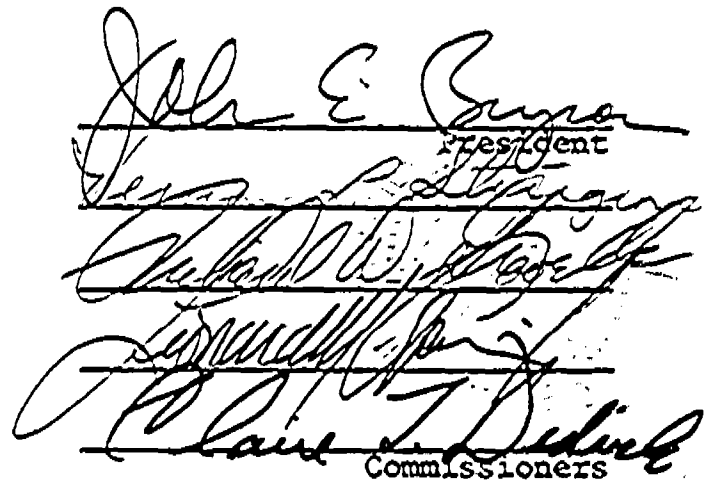 John E. Bryson
President
Vernon L. Sturgeon
Richard D. Gravelle
Leonard M. Grimes, Jr.
Claire T. Dedrick
Commissioners